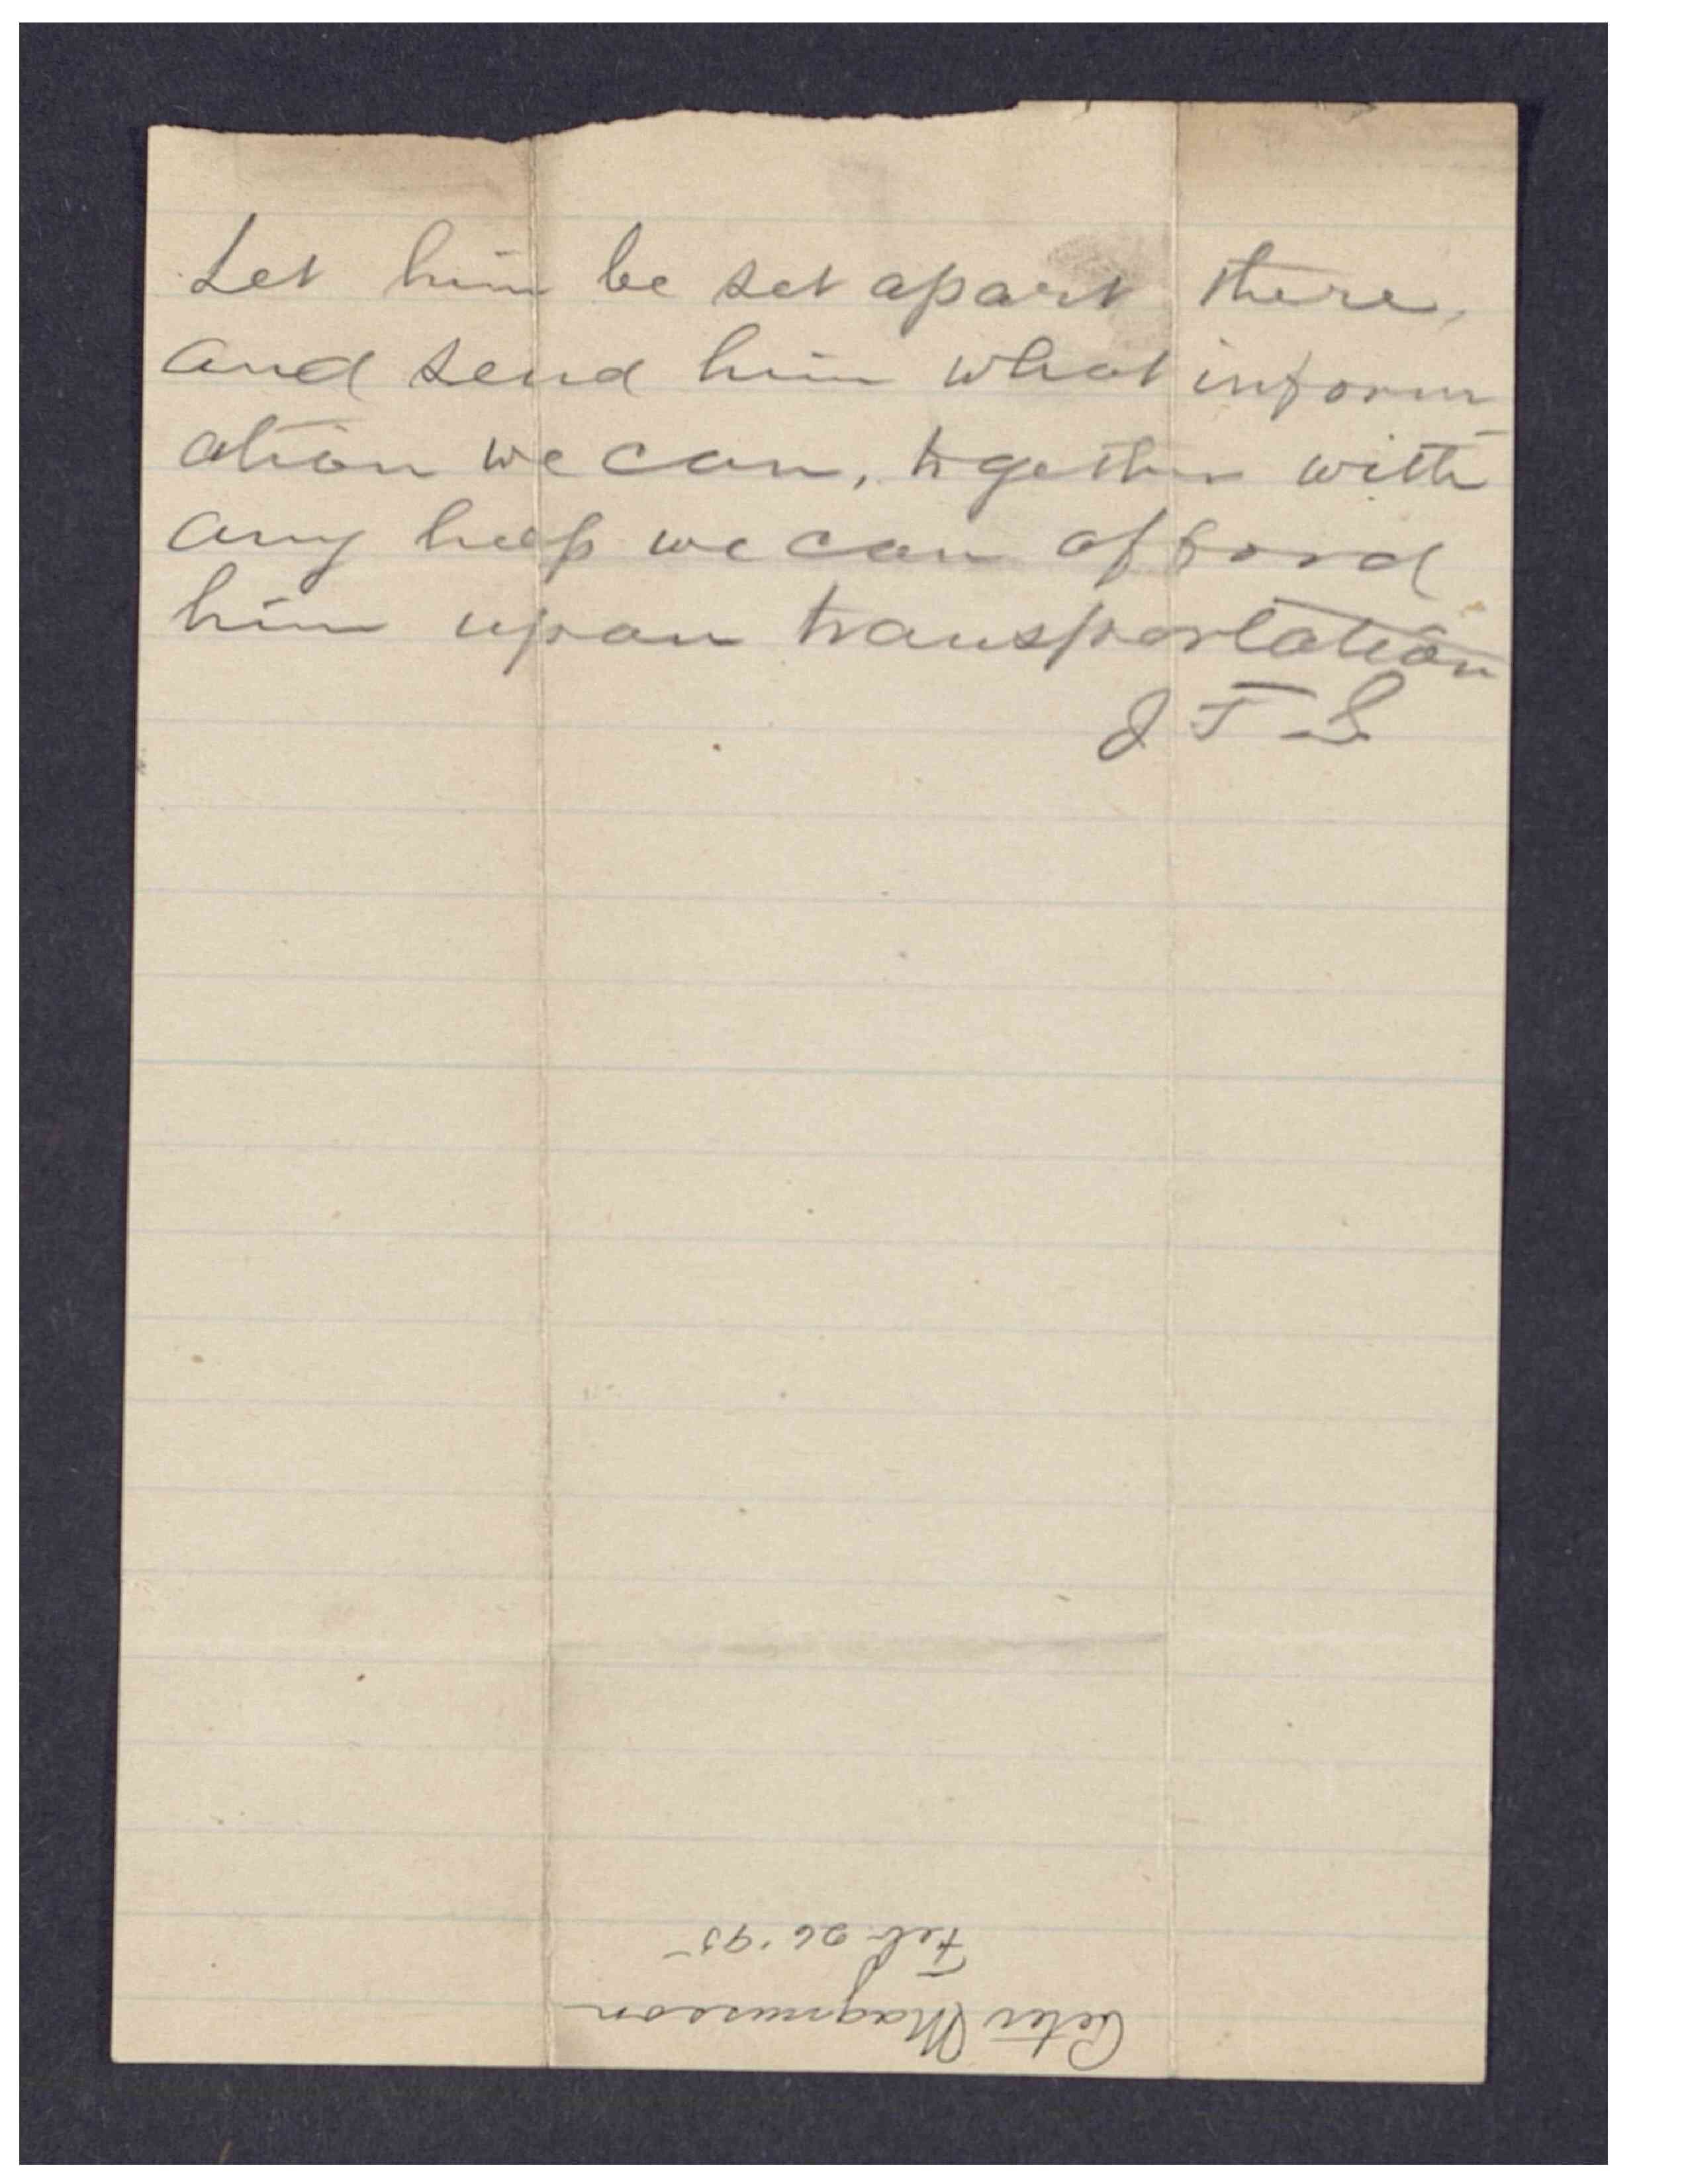 Let him be set apart there,
and send him what inform
ation we can, together with
any help we can afford
him upon transportation
J F S
Peter Magnusson
Feb 26 '95